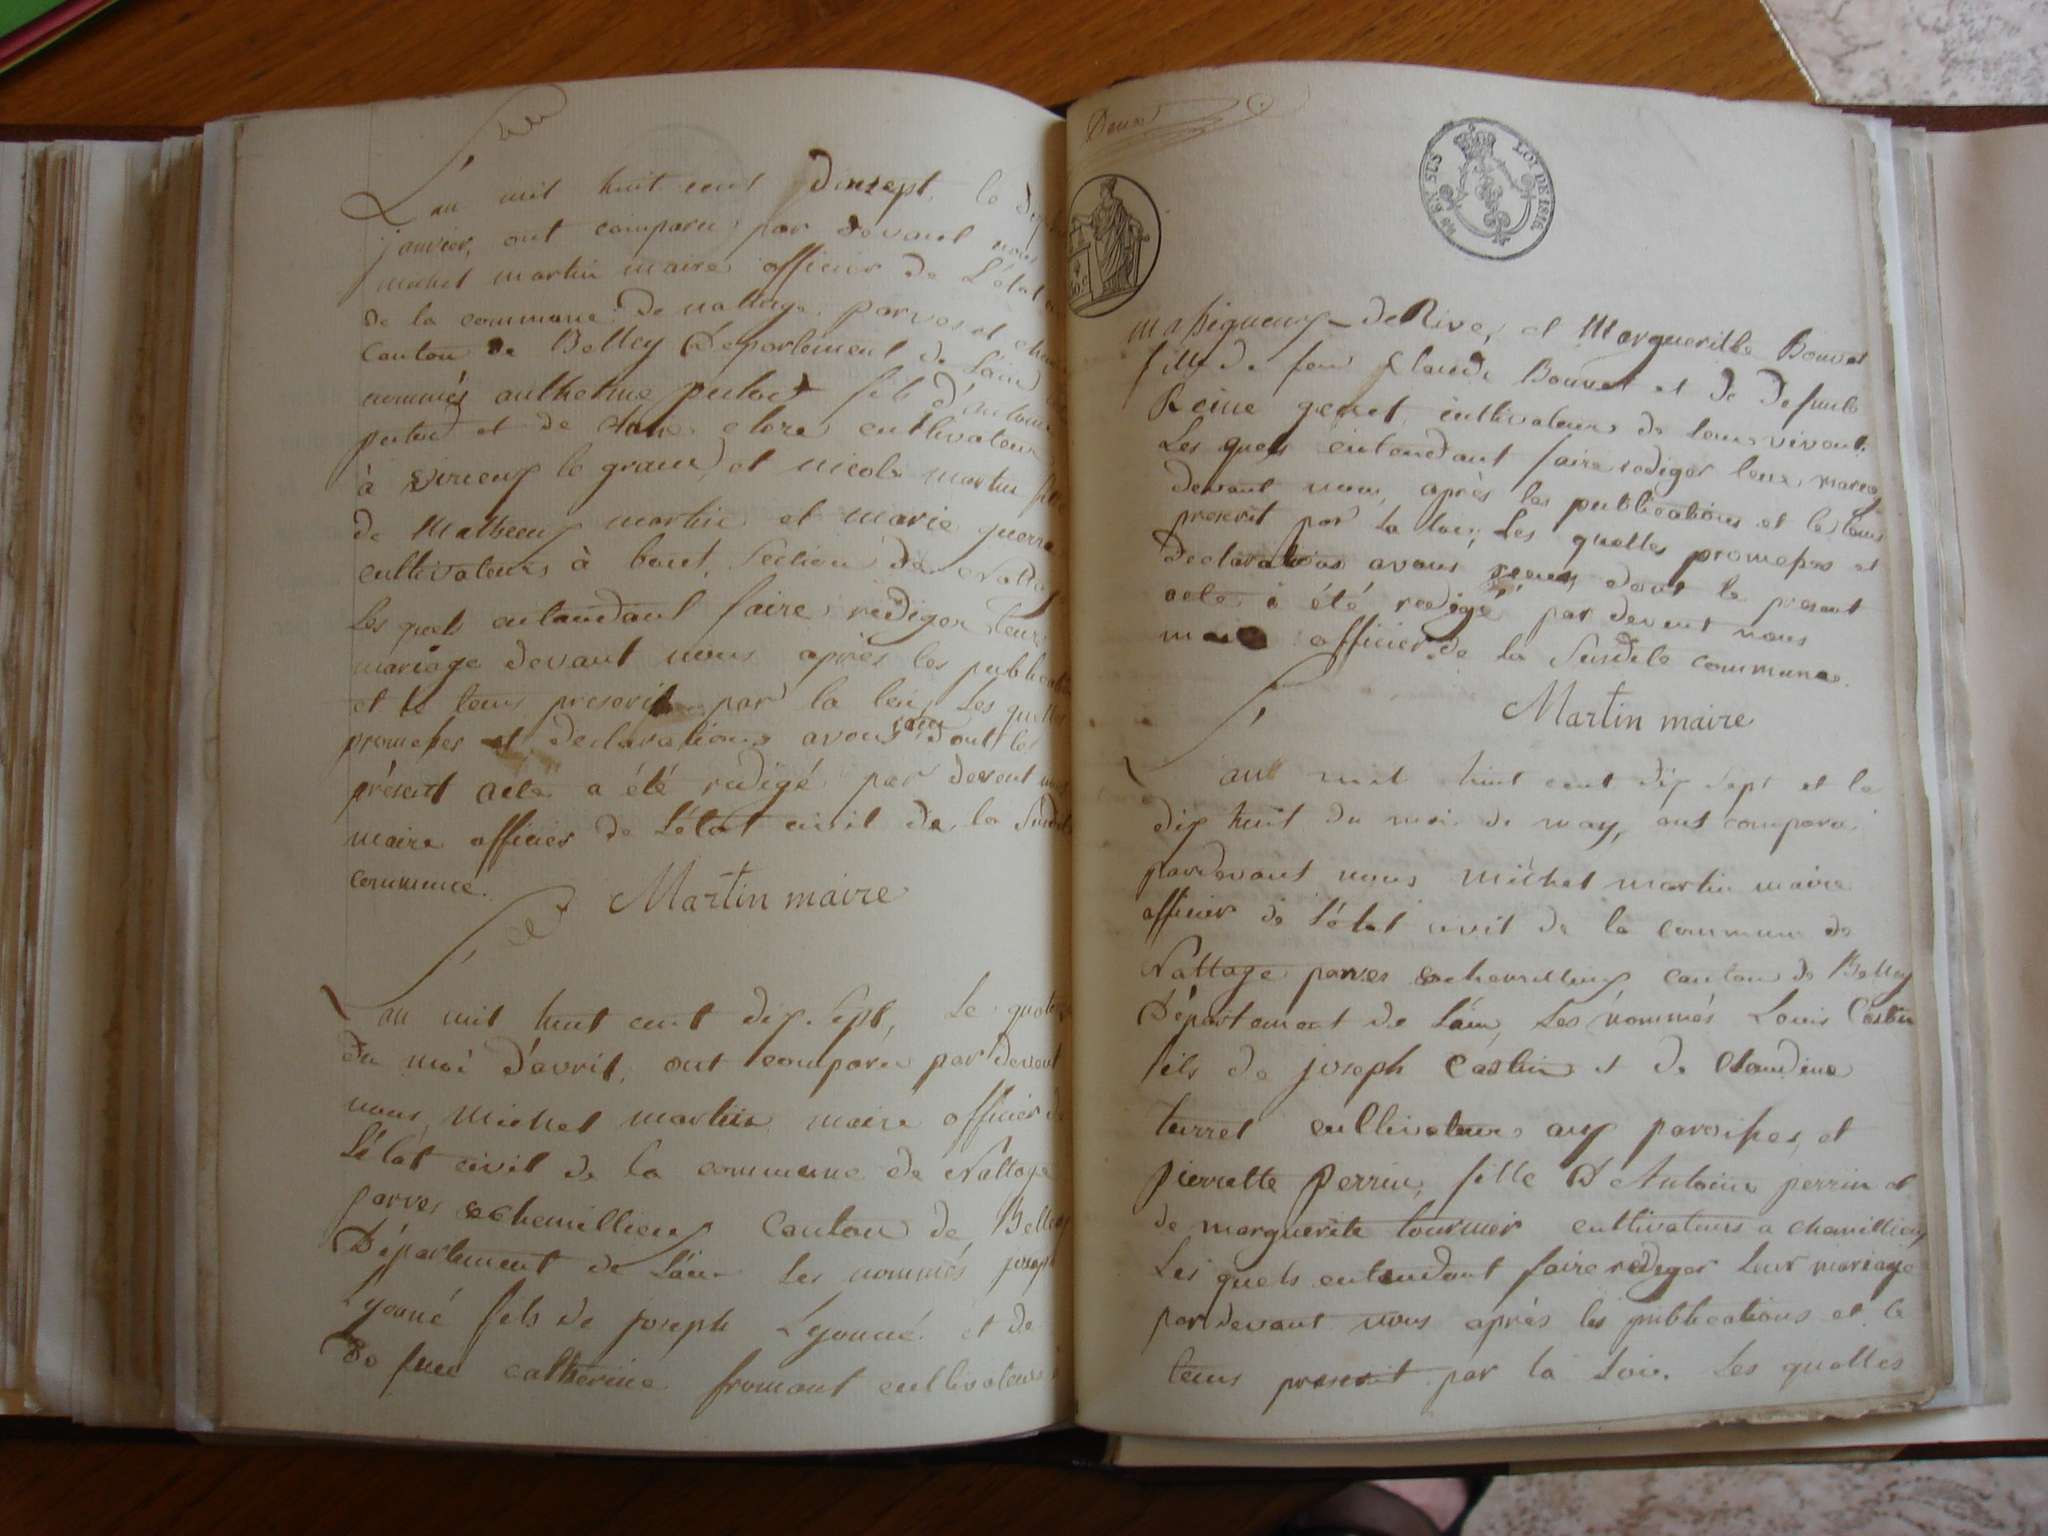 L'an mil huit cent dixsept, le
janvier, ont comparu par devant nous
michel martin maire officier de L'état
de la commune de nattage parves et
Canton de Belley Département de L'ain
nommés anthelme fils d'antoine
et de cultivateurs
à virieux le grand, et nicole martin
de Matheeux martin et marie guerre
cultivateurs à Section de Nattage
Les quels entendant faire rediger leur
mariage devant nous après les
et le tems prescrit par la loi, Les quelles
promesses et declarations avons dont le
présent acte a été redigé par devent nous
maire officier de L'état civil de la
commune.
Martin maire
L'an mil huit cent dix sept, le
du moi d'avril, ont comparu par devent
nous, Michel martin maire officier de
L'état civil de la commune de Nattage
parves & chemillieux Canton de Belley
Département de L'ain Les nommés joseph
Lyonné fils de joseph Lyonné et de
de feue catherine fromont cultivateurs
Deux
LOI DE 1816.
massigneux de Rive, et Margueritte Bouvet
fille de feu Claude Bouvet et de defunte
Reine genet, cultivateurs de leurs vivant.
Les quels entendant faire rediger leur
devant nous, après les publications et le tems
prescrit par la loi, Les quelles promesses et
declarations avons reçues, dont le present
acte à été redigé par devent nous
maire officier de la Susdite commune.
Martin maire
L'an mil huit cent dix sept et le
dix huit du moi de may, ont comparu
pardevant nous Michel martin maire
officier de L'état civil de la commune de
Nattage parves & chemillieux canton de Belley
Département de L'ain, Les nommés Louis Castin
fils de joseph Castin et de Claudine
terret cultivateurs aux paroisses, et
pierrette perrin, fille D'Antoine perrin et
de marguerite tournier cultivateurs a chemillieux
Les quels entendant faire rediger leur mariage
pardevant nous après les publications et le
tems prescrit par la Loi. Les quelles